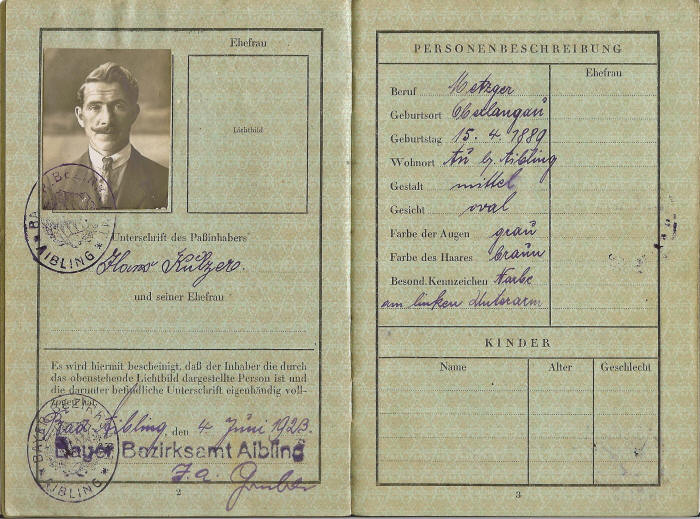 Ehefrau
Lichtbild
BAYER. BEZIRKSAMT
* AIBLING *
Unterschrift des Paßinhabers
Hans Külzer.
und seiner Ehefrau
Es wird hiermit bescheinigt, daß der Inhaber die durch
das obenstehende Lichtbild dargestellte Person ist und
die darunter befindliche Unterschrift eigenhändig voll-
zogen hat.
Bad Aibling, den 4. Juni 1923.
Bayer. Bezirksamt Aibling
J. A. Gruber
BAYER. BEZIRKSAMT
* AIBLING *
2
PERSONENBESCHREIBUNG
Ehefrau
Beruf Metzger
Geburtsort Oberlangau
Geburtstag 15. 4. 1889
Wohnort Au b. Aibling
Gestalt mittel
Gesicht oval
Farbe der Augen grau
Farbe des Haares braun
Besond. Kennzeichen Narbe
am linken Unterarm
KINDER
Name Alter Geschlecht
3